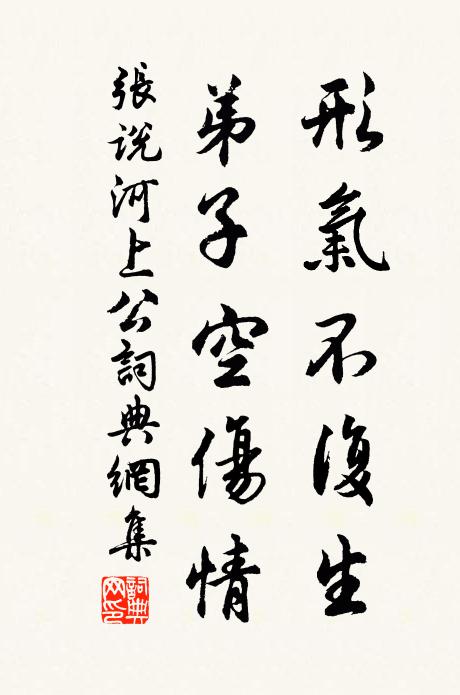 形氣不復生
弟子空傷情
張說河上公詞典網集
詞典網印